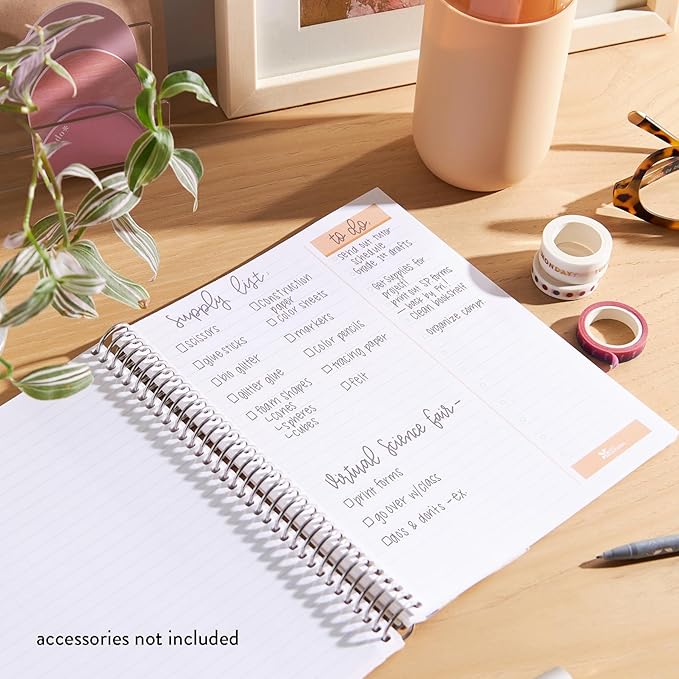 Supply List
□ scissors
□ glue sticks
□ bio glitter
□ glitter glue
□ foam shapes
↳ cones
↳ spheres
↳ cubes
□ construction
paper
□ color sheets
□ markers
□ color pencils
□ tracing paper
□ felt
Virtual Science Fair -
□ print forms
□ go over w/class
□ do's & don'ts -ex.
to do.
send out tutor
schedule
Grade 1st drafts
Get Supplies for
project!
- print out SP forms
- back by Fri!
Clean bookshelf
organize comp.
accessories not included